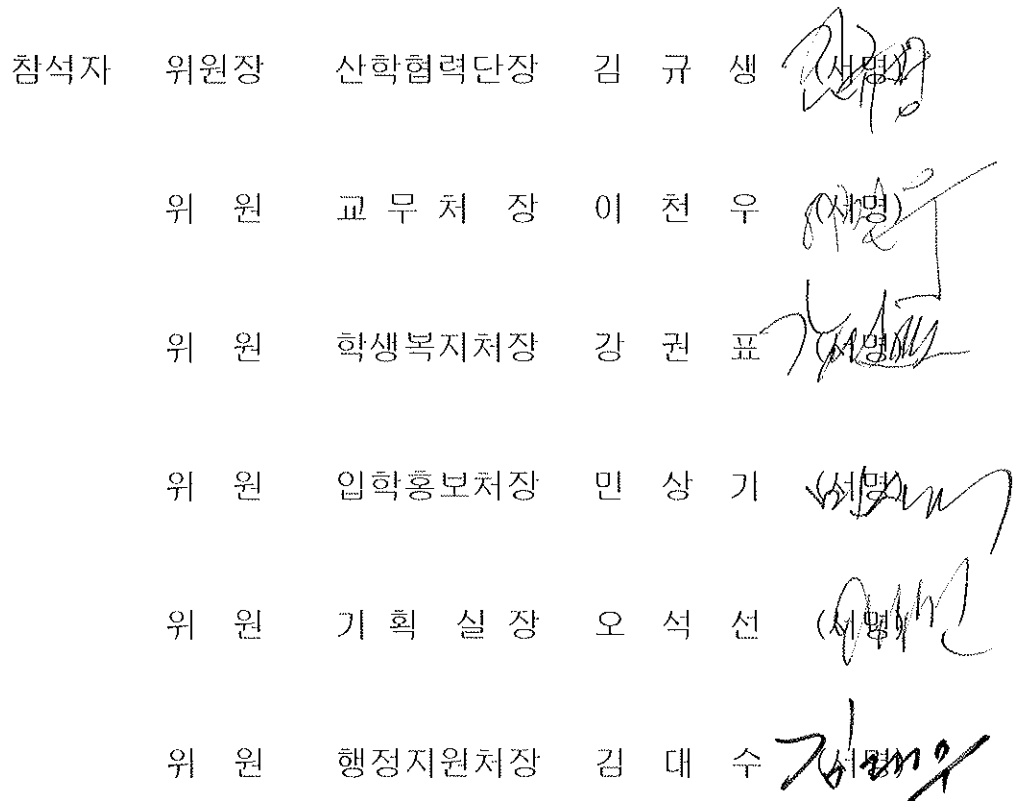 참석자 위원장 산학협력단장 김 규 생 (서명)
위 원 교 무 처 장 이 천 우 (서명)
위 원 학생복지처장 강 권 표 (서명)
위 원 입학홍보처장 민 상 기 (서명)
위 원 기 획 실 장 오 석 선 (서명)
위 원 행정지원처장 김 대 수 (서명)